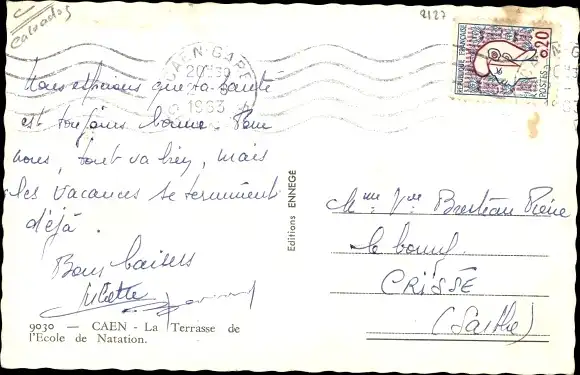 Calvados
2127
CAEN-GARE
20H30
1963
REPUBLIQUE FRANÇAISE
0,20
POSTES
Nous espérons que ta santé
est toujours bonne. Pour
nous, tout va bien, mais
les vacances se terminent
déjà.
Bons baisers
Juliette
Editions ENNEGÉ
Mme Vve
le bourg
CRISSÉ
(Sarthe)
9030 — CAEN - La Terrasse de
l'Ecole de Natation.